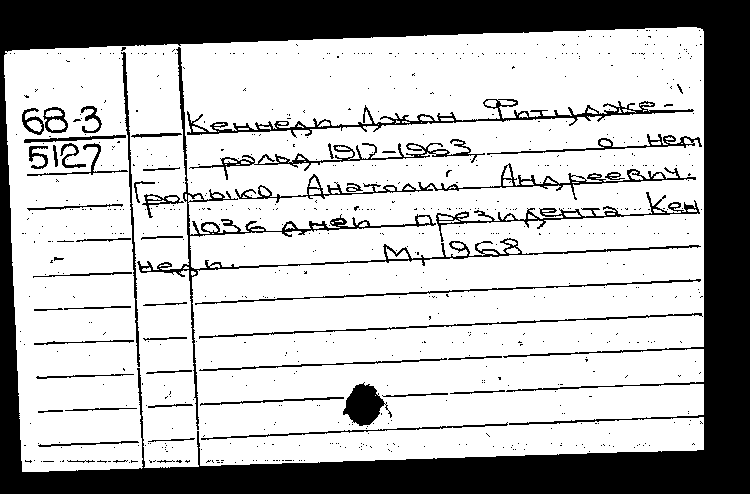 68-3 Кеннеди, Джон Фитцдже-
5127 ральд, 1917-1963, о нем
Громыко, Анатолий Андреевич.
1036 дней президента Кен
неди. М., 1968